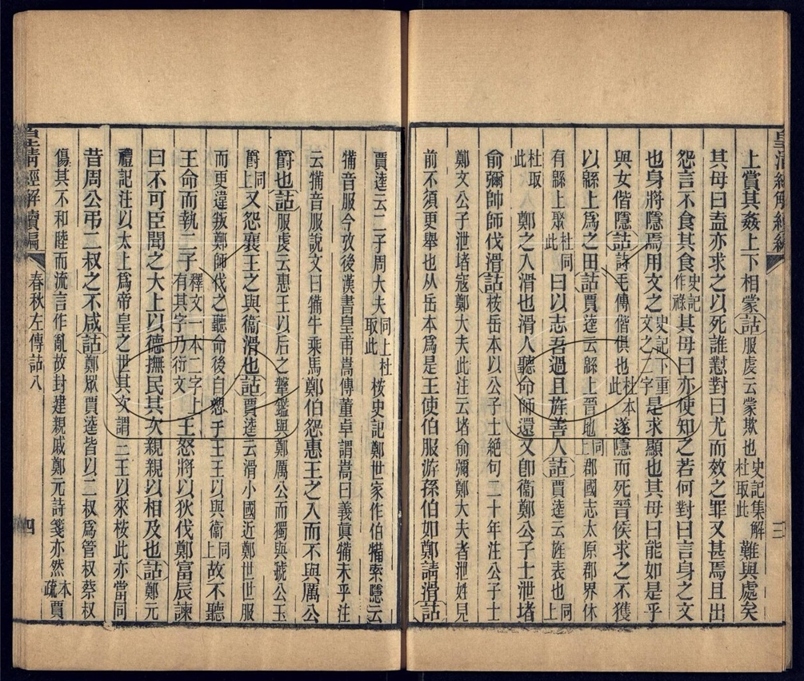 上賞其姦上下相蒙詁服虔云蒙欺也史記集解杜取此難與處矣
其母曰盍亦求之以死誰懟對曰尤而效之罪又甚焉且出
怨言不食其食史記作祿其母曰亦使知之若何對曰言身之文
也身將隱焉用文之史記下重文之二字是求顯也其母曰能如是乎
與女偕隱詁詩毛傳偕俱也杜本此遂隱而死晉侯求之不獲
以緜上爲之田詁賈逵云緜上晉地同上郡國志太原郡界休
有緜上聚杜同此曰以志吾過且旌善人詁賈逵云旌表也同上
杜取此鄭之入滑也滑人聽命師還又卽衞鄭公子士泄堵
俞彌帥師伐滑詁桉岳本以公子士絕句二十年注公子士
鄭文公子泄堵寇鄭大夫此注云堵俞彌鄭大夫者泄姓見
前不須更舉也从岳本爲是王使伯服游孫伯如鄭請滑詁
賈逵云二子周大夫同上杜取此桉史記鄭世家作伯犕索隱云
犕音服今攷後漢書皇甫嵩傳董卓謂嵩曰義眞犕未乎注
云犕音服說文曰犕牛乘馬鄭伯怨惠王之入而不與厲公
爵也詁服虔云惠王以后之鞶鑑與鄭厲公而獨與虢公玉
爵同上又怨襄王之與衞滑也詁賈逵云滑小國近鄭世世服
而更違叛鄭師伐之聽命後自愬于王王以與衞同上故不聽
王命而執二子釋文一本二字上有其字乃衍文王怒將以狄伐鄭富辰諫
曰不可臣聞之大上以德撫民其次親親以相及也詁鄭元
禮記注以太上爲帝皇之世其次謂三王以來桉此亦當同
昔周公弔二叔之不咸詁鄭眾賈逵皆以二叔爲管叔蔡叔
傷其不和睦而流言作亂故封建親戚鄭元詩箋亦然本疏賈
皇清經解續編
春秋左傳詁八
四